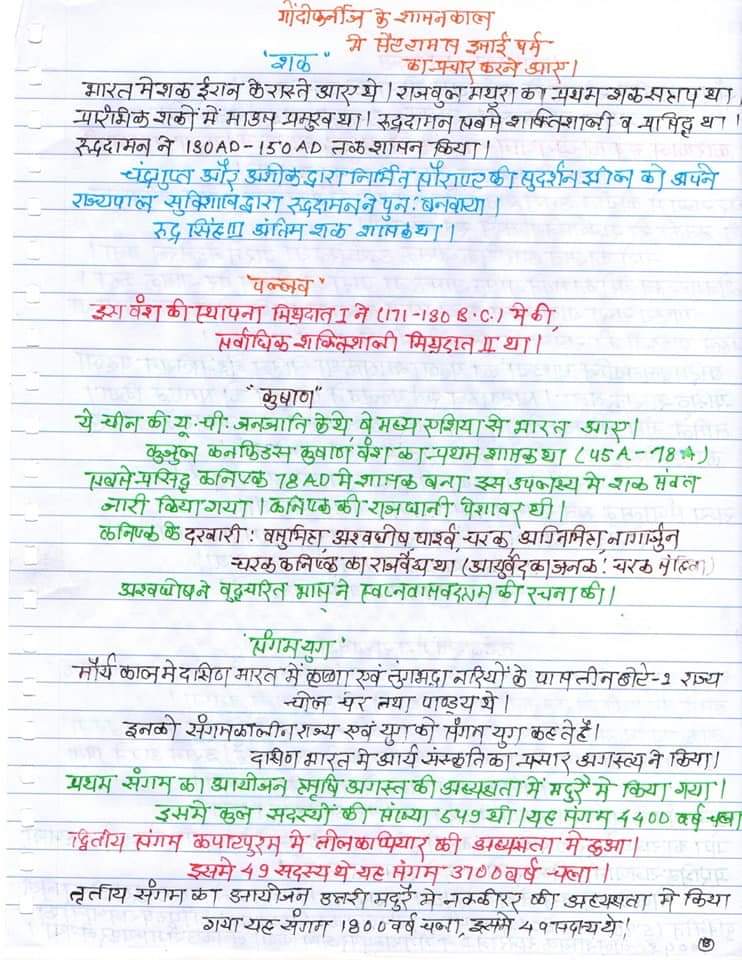 गोंदीफर्नीज के शासनकाल
मे सेंटथामस इसाई धर्म
का प्रचार करने आए।
"शक"
भारत मे शक ईरान के रास्ते आए थे। राजवुल मथुरा का प्रथम शक सत्रप था।
प्रारंभिक शकों में माउस प्रमुख था। रुद्रदामन सबसे शाक्तिशाली व प्रसिद्ध था।
रुद्रदामन ने 130AD-150AD तक शासन किया।
चंद्रगुप्त और अशोक द्वारा निर्मित सौराष्ट्र की सुदर्शन झील को अपने
राज्यपाल सुविशाख द्वारा रुद्रदामन ने पुनः बनवाया।
रुद्र सिंह III अंतिम शक शासक था।
"पल्लव"
इस वंश की स्थापना मिथ्रदात I ने (171-130 B.C.) मे की,
सर्वाधिक शक्तिशाली मिथ्रदात II था।
"कुषाण"
ये चीन की यू-ची जनजाति के थे, वे मध्य एशिया से भारत आए।
कुजुल कनफिडस कुषाण वंश का प्रथम शासक था (45A-78A)
सबसे प्रसिद्ध कनिष्क 78AD मे शासक बना इस उपलक्ष्य मे शक संवत
जारी किया गया। कनिष्क की राजधानी पेशावर थी।
कनिष्क के दरबारी: वसुमित्र, अश्वघोष, पार्श्व, चरक, अग्निमित्र, नागार्जुन
चरक कनिष्क का राजवैद्य था (आयुर्वेद का जनक: चरक संहिता)
अश्वघोष ने बुद्धचरित भास ने स्वप्नवासवदत्तम की रचना की।
"संगमयुग"
मौर्य काल मे दक्षिण भारत में कृष्णा एवं तुंगभद्रा नदियों के पास तीन छोटे-2 राज्य
चोल चेर तथा पाण्ड्य थे।
इनको संगमकालीन राज्य एवं युग को संगम युग कहते है।
दाक्षिण भारत मे आर्य संस्कृति का प्रसार अगस्त्य ने किया।
प्रथम संगम का आयोजन ऋषि अगस्त की अध्यक्षता में मदुरै मे किया गया।
इसमे कुल सदस्यों की संख्या 549 थी। यह संगम 4400 वर्ष चला
द्वितीय संगम कपाटपुरम में तोलकाप्पियार की अध्यक्षता मे हुआ।
इसमे 49 सदस्य थे यह संगम 3700 वर्ष चला।
तृतीय संगम का आयोजन उत्तरी मदुरै मे नक्कीरर की अध्यक्षता मे किया
गया यह संगम 1800 वर्ष चला, इसमे 49 सदस्य थे।